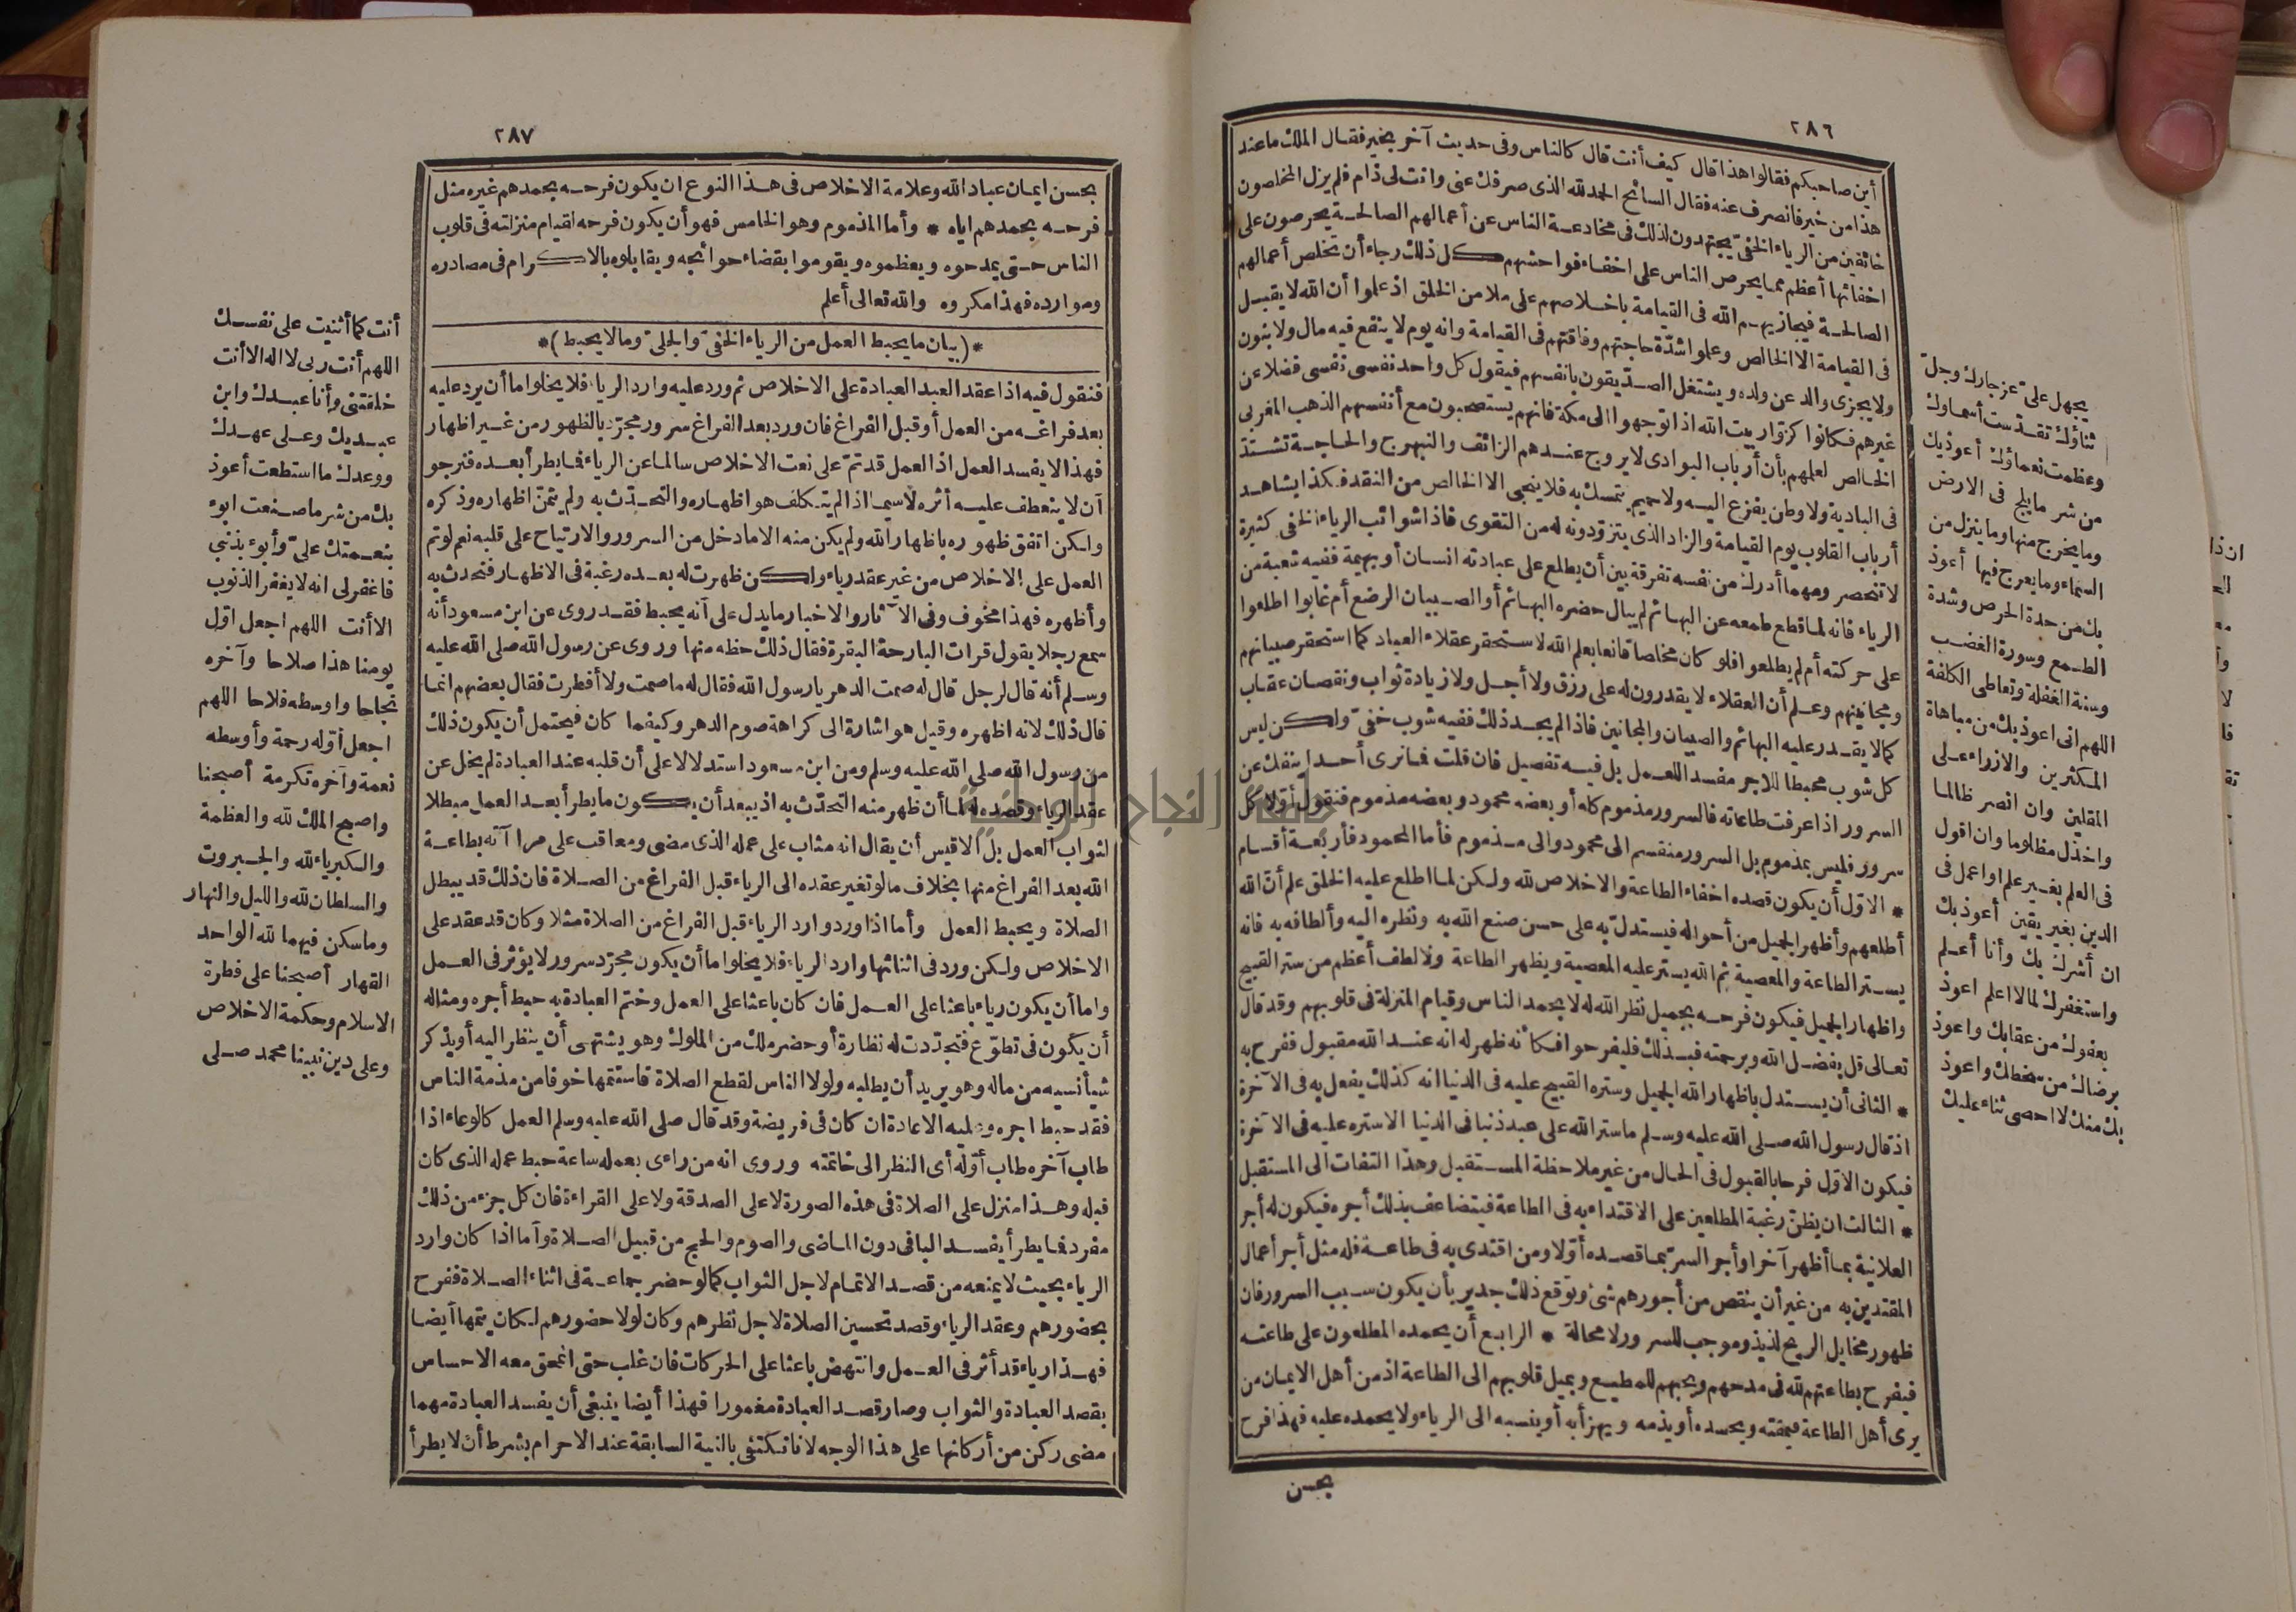 ٢٨٦
أين صاحبكم فقالوا هذا قال كيف أنت قال كالناس وفى حديث آخر بخير فقال الملك ما عند
هذا من خير فانصرف عنه فقال السائح الحمد لله الذى صرفك عنى وانت لى ذام فلم يزل المخلصون
خائفين من الرياء الخفىّ يجتهدون لذلك فى مخادعة الناس عن أعمالهم الصالحة يحرصون على
اخفائها أعظم مما يحرص الناس على اخفاء فواحشهم كل ذلك رجاء أن تخلص أعمالهم
الصالحة فيجازيهم الله فى القيامة باخلاصهم على ملا من الخلق اذ علموا أن الله لا يقبل
فى القيامة الا الخالص وعلموا شدّة حاجتهم وفاقتهم فى القيامة وانه يوم لا ينفع فيه مال ولا بنون
ولا يجزى والد عن ولده ويشتغل الصدّيقون بانفسهم فيقول كل واحد نفسى نفسى فضلا عن
غيرهم فكانوا كزوّار بيت الله اذا توجهوا الى مكة فانهم يستصحبون مع أنفسهم الذهب المغربى
الخالص لعلمهم بأن أرباب البوادى لا يروج عندهم الزائف والنبهرج والحاجة تشتدّ
فى البادية ولا وطن يفزع اليه ولا حميم يتمسك به فلا ينجى الا الخالص من النقد فكذا يشاهد
أرباب القلوب يوم القيامة والزاد الذى يتزوّدونه له من التقوى فاذا شوائب الرياء الخفى كثيرة
لا تنحصر ومهما أدرك من نفسه تفرقة بين أن يطلع على عبادته انسان أو بهيمة ففيه شعبة من
الرياء فانه لما قطع طمعه عن البهائم لم يبال حضره البهائم أو الصبيان الرضع أم غابوا اطلعوا
على حركته أم لم يطلعوا فلو كان مخلصا قانعا بعلم الله لاستحقر عقلاء العباد كما استحقر صبيانهم
ومجانينهم وعلم أن العقلاء لا يقدرون له على رزق ولا أجل ولا زيادة ثواب ونقصان عقاب
كما لا يقدر عليه البهائم والصبيان والمجانين فاذا لم يجد ذلك ففيه شوب خفىّ ولكن ليس
كل شوب محبطا للاجر مفسد اللعمل بل فيه تفصيل فان قلت فما نرى أحدا ينفك عن
السرور اذا عرفت طاعاته فالسرور مذموم كله أو بعضه محمود وبعضه مذموم فنقول أوّلا كل
سرور فليس بمذموم بل السرور منقسم الى محمود والى مذموم فأما المحمود فأربعة أقسام
* الاوّل أن يكون قصده اخفاء الطاعة والاخلاص لله ولكن لما اطلع عليه الخلق علم أن الله
أطلعهم وأظهر الجميل من أحواله فيستدلّ به على حسن صنع الله به ونظره اليه وألطافه به فانه
يستر الطاعة والمعصية ثم الله يستر عليه المعصية ويظهر الطاعة ولا لطف أعظم من ستر القبيح
واظهار الجميل فيكون فرحه بجميل نظر الله له لا بحمد الناس وقيام المنزلة فى قلوبهم وقد قال
تعالى قل بفضل الله وبرحمته فبذلك فليفرحوا فكأنه ظهر له انه عند الله مقبول ففرح به
* الثانى أن يستدل باظهار الله الجميل وستره القبيح عليه فى الدنيا انه كذلك يفعل به فى الآخرة
اذ قال رسول الله صلى الله عليه وسلم ما ستر الله على عبد ذنبا فى الدنيا الا ستره عليه فى الآخرة
فيكون الاوّل فرحا بالقبول فى الحال من غير ملاحظة المستقبل وهذا التفات الى المستقبل
* الثالث ان يظنّ رغبة المطلعين على الاقتداء به فى الطاعة فيتضاعف بذلك أجره فيكون له أجر
العلانية بما أظهر آخرا وأجر السرّ بما قصده أوّلا ومن اقتدى به فى طاعة فله مثل أجر أعمال
المقتدين به من غير أن ينقص من أجورهم شئ وتوقع ذلك جدير بأن يكون سبب السرور فان
ظهور مخايل الربح لذيذ وموجب للسرور لا محالة * الرابع أن يحمده المطلعون على طاعته
فيفرح بطاعتهم لله فى مدحهم وبحبهم للمطيع وبميل قلوبهم الى الطاعة اذ من أهل الايمان من
يرى أهل الطاعة فيمقته ويحسده أو يذمه ويهزأ به أو ينسبه الى الرياء ولا يحمده عليه فهذا فرح
بحسن
يجهل علىّ عز جارك وجلّ
ثناؤك تقدّست أسماؤك
وعظمت نعماؤك أعوذ بك
من شر ما يلج فى الارض
وما يخرج منها وما ينزل من
السماء وما يعرج فيها أعوذ
بك من حدة الحرص وشدة
الطمع وسورة الغضب
وسنة الغفلة وتعاطى الكلفة
اللهم انى اعوذ بك من مباهاة
المكثرين والازراء على
المقلين وان انصر ظالما
واخذل مظلوما وان اقول
فى العلم بغير علم او اعمل فى
الدين بغير يقين أعوذ بك
ان أشرك بك وأنا أعلم
واستغفرك لما لا اعلم اعوذ
بعفوك من عقابك واعوذ
برضاك من سخطك واعوذ
بك منك لا احصى ثناء عليك
٢٨٧
بحسن ايمان عباد الله وعلامة الاخلاص فى هذا النوع ان يكون فرحه بحمدهم غيره مثل
فرحه بحمدهم اياه * وأما المذموم وهو الخامس فهو أن يكون فرحه لقيام منزلته فى قلوب
الناس حتى يمدحوه ويعظموه ويقوموا بقضاء حوائجه ويقابلوه بالاكرام فى مصادره
وموارده فهذا مكروه والله تعالى أعلم
*(بيان ما يحبط العمل من الرياء الخفىّ والجلىّ وما لا يحبط)*
فنقول فيه اذا عقد العبد العبادة على الاخلاص ثم ورد عليه وارد الرياء فلا يخلوا ما أن يرد عليه
بعد فراغه من العمل أو قبل الفراغ فان ورد بعد الفراغ سرور مجرّد بالظهور من غير اظهار
فهذا لا يفسد العمل اذ العمل قد تمّ على نعت الاخلاص سالما عن الرياء فما يطرأ بعده فنرجو
أن لا ينعطف عليه أثره لاسيما اذا لم يتكلف هو اظهاره والتحدّث به ولم يتمنّ اظهاره وذكره
ولكن اتفق ظهوره باظهار الله ولم يكن منه الا ما دخل من السرور والارتياح على قلبه نعم لو تم
العمل على الاخلاص من غير عقد رياء ولكن ظهرت له بعده رغبة فى الاظهار فتحدث به
وأظهره فهذا مخوف وفى الآثار والاخبار ما يدل على أنه يحبط فقد روى عن ابن مسعود أنه
سمع رجلا يقول قرات البارحة البقرة فقال ذلك حظه منها وروى عن رسول الله صلى الله عليه
وسلم أنه قال لرجل قال له صمت الدهر يا رسول الله فقال له ما صمت ولا أفطرت فقال بعضهم انما
قال ذلك لانه اظهره وقيل هو اشارة الى كراهة صوم الدهر وكيفما كان فيحتمل أن يكون ذلك
من رسول الله صلى الله عليه وسلم ومن ابن مسعود استدلالا على أن قلبه عند العبادة لم يخل عن
عقد الرياء وقصده له لما أن ظهر منه التحدّث به اذ يبعد أن يكون ما يطرأ بعد العمل مبطلا
لثواب العمل بل الاقيس أن يقال انه مثاب على عمله الذى مضى ومعاقب على مراآته بطاعة
الله بعد الفراغ منها بخلاف ما لو تغير عقده الى الرياء قبل الفراغ من الصلاة فان ذلك قد يبطل
الصلاة ويحبط العمل وأما اذا ورد وارد الرياء قبل الفراغ من الصلاة مثلا وكان قد عقد على
الاخلاص ولكن ورد فى اثنائها وارد الرياء فلا يخلوا ما أن يكون مجرّد سرور لا يؤثر فى العمل
واما أن يكون رياء باعثا على العمل فان كان باعثا على العمل وختم العبادة به حبط أجره ومثاله
أن يكون فى تطوّع فتجدّدت له نظارة أو حضر ملك من الملوك وهو يشتهى أن ينظر اليه أو يذكر
شيأ نسيه من ماله وهو يريد أن يطلبه ولولا الناس لقطع الصلاة فاستتمها خوفا من مذمة الناس
فقد حبط اجره وعليه الاعادة ان كان فى فريضة وقد قال صلى الله عليه وسلم العمل كالوعاء اذا
طاب آخره طاب أوّله أى النظر الى خاتمته وروى انه من راءى بعمله ساعة حبط عمله الذى كان
قبله وهذا منزل على الصلاة فى هذه الصورة لا على الصدقة ولا على القراءة فان كل جزء من ذلك
مفرد فما يطرأ يفسد الباقى دون الماضى والصوم والحج من قبيل الصلاة وأما اذا كان وارد
الرياء بحيث لا يمنعه من قصد الاتمام لاجل الثواب كما لو حضر جماعة فى اثناء الصلاة ففرح
بحضورهم وعقد الرياء وقصد تحسين الصلاة لاجل نظرهم وكان لولا حضورهم لكان يتمها أيضا
فهذا رياء قد أثر فى العمل وانتهض باعثا على الحركات فان غلب حتى انمحق معه الاحساس
بقصد العبادة والثواب وصار قصد العبادة مغمورا فهذا أيضا ينبغى أن يفسد العبادة مهما
مضى ركن من أركانها على هذا الوجه لانا نكتفى بالنية السابقة عند الاحرام بشرط أن لا يطرأ
أنت كما أثنيت على نفسك
اللهم أنت ربى لا اله الا أنت
خلقتنى وأنا عبدك وابن
عبديك وعلى عهدك
ووعدك ما استطعت أعوذ
بك من شر ما صنعت ابوء
بنعمتك علىّ وأبوء بذنبى
فاغفر لى انه لا يغفر الذنوب
الا أنت اللهم اجعل اوّل
يومنا هذا صلاحا وآخره
نجاحا واوسطه فلاحا اللهم
اجعل أوّله رحمة وأوسطه
نعمة وآخره تكرمة أصبحنا
واصبح الملك لله والعظمة
والكبرياء لله والجبروت
والسلطان لله والليل والنهار
وما سكن فيهما لله الواحد
القهار أصبحنا على فطرة
الاسلام وحكمة الاخلاص
وعلى دين نبينا محمد صلى
جامعة النجاح الوطنية